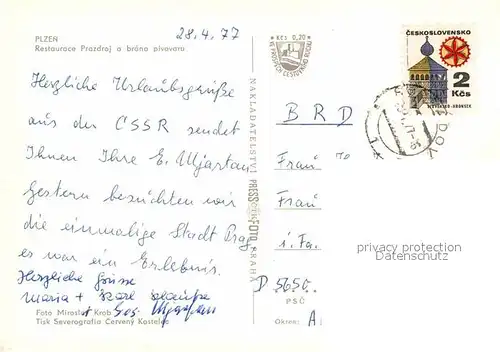 28.4.77
PLZEŇ
Restaurace Prazdroj a brána pivovaru
Herzliche Urlaubsgrüße
aus der CSSR sendet
Ihnen Ihre E. Mjartan
Gestern besuchten wir
die einmalige Stadt Prag,
es war ein Erlebnis.
Herzliche Grüsse
Maria +
Foto Miroslav Krob
Tisk Severografia Červený Kostelec
NAKLADATELSTVÍ PRESSFOTO PRAHA
Kčs 0,20
ČESKOSLOVENSKO
2
Kčs
BRD
Frau
Frau
i. Fa.
D 5650
PSČ
Okres: A
privacy protection
Datenschutz